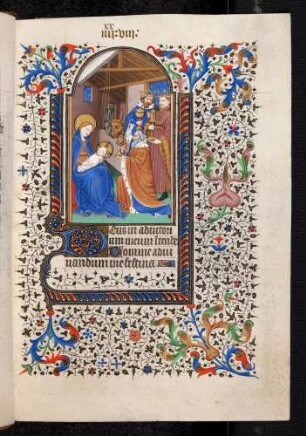 xx
iiij·viij·
Deus in adiutori
um meum intende
Domine adiu
uandum me festina